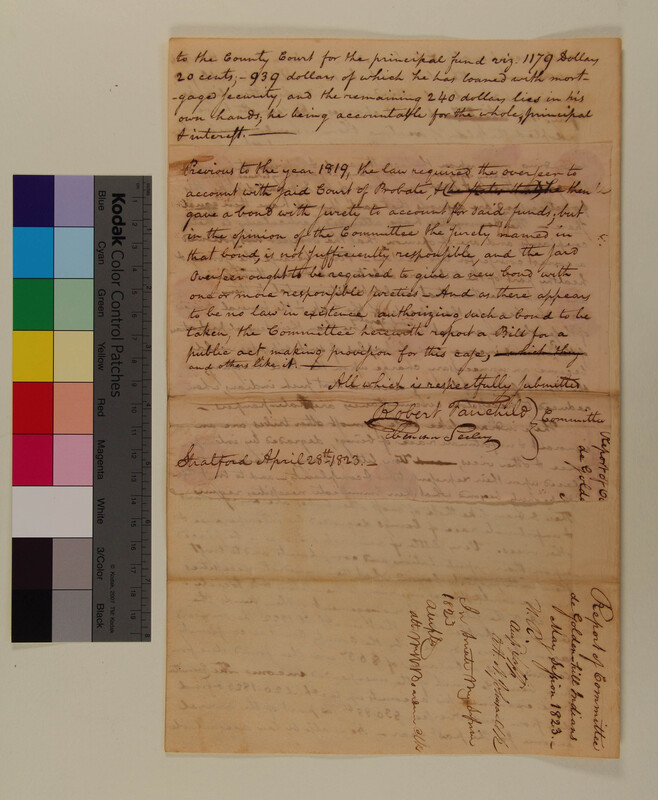 to the County Court for the principal fund viz. 1179 Dollars
20 cents,- 939 dollars of which he has loaned with mort-
-gaged security, and the remaining 240 dollars lies in his
own hands, he being accountable for the whole, principal
& interest.
Previous to the year 1819, the law required the overseer to
account with said Court of Probate, & then
gave a bond with surety to account for said funds; but
in the opinion of the Committee the surety named in
that bond, is not sufficiently responsible, and the said
Overseer ought to be required to give a new bond with
one or more responsible sureties - And as there appears
to be no law in existence authorizing such a bond to be
taken, the Committee herewith report a Bill for a
public act making provision for this case, which they
and others like it.
All which is respectfully submitted
Robert Fairchild
Committee
Stratford April 28th. 1823.-
Report of
de Golde
Report of Committee
de Golden-hill Indians
May Session 1823.-
In Senate May Session
1823
Kodak Color Control Patches
Blue
Cyan
Green
Yellow
Red
Magenta
White
3/Color
Black
© Kodak, 2007 TM: Kodak